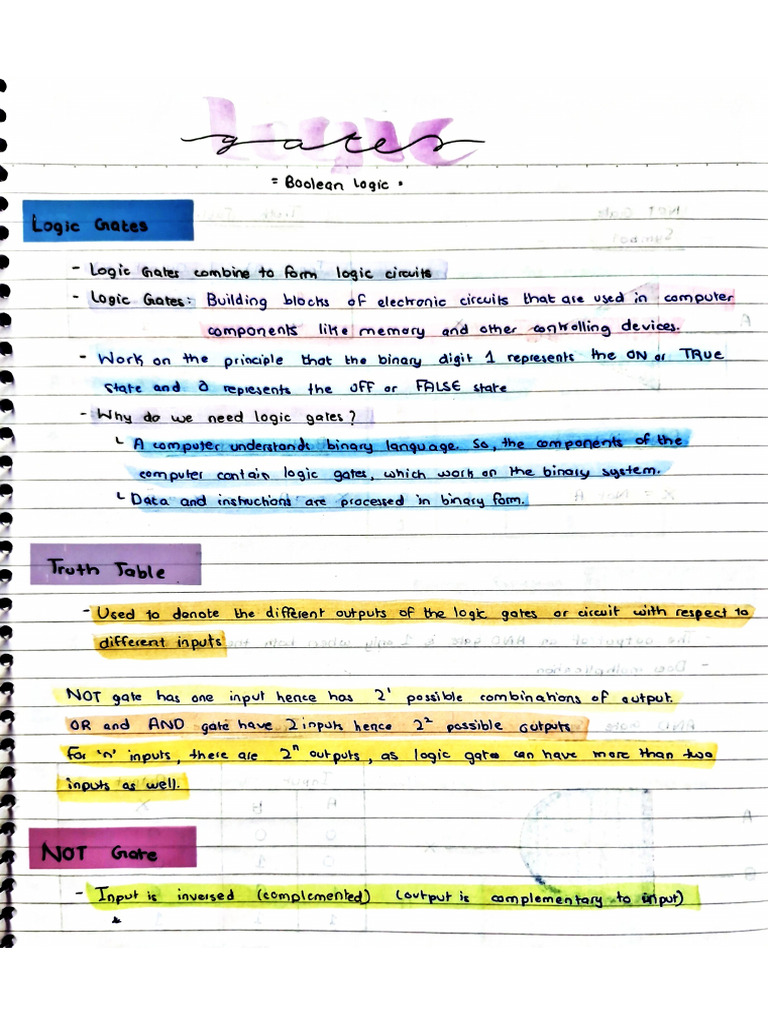 Logic
gates
= Boolean Logic •
Logic Gates
- Logic Gates combine to form logic circuits
- Logic Gates: Building blocks of electronic circuits that are used in computer
components like memory and other controlling devices.
- Work on the principle that the binary digit 1 represents the ON or TRUE
state and 0 represents the OFF or FALSE state
- Why do we need logic gates?
└ A computer understands binary language. So, the components of the
computer contain logic gates, which work on the binary system.
└ Data and instructions are processed in binary form.
Truth Table
- Used to denote the different outputs of the logic gates or circuit with respect to
different inputs
NOT gate has one input hence has 2¹ possible combinations of output.
OR and AND gate have 2 inputs hence 2² possible outputs
For 'n' inputs, there are 2ⁿ outputs, as logic gate can have more than two
inputs as well.
NOT Gate
- Input is inversed (complemented) (output is complementary to input)